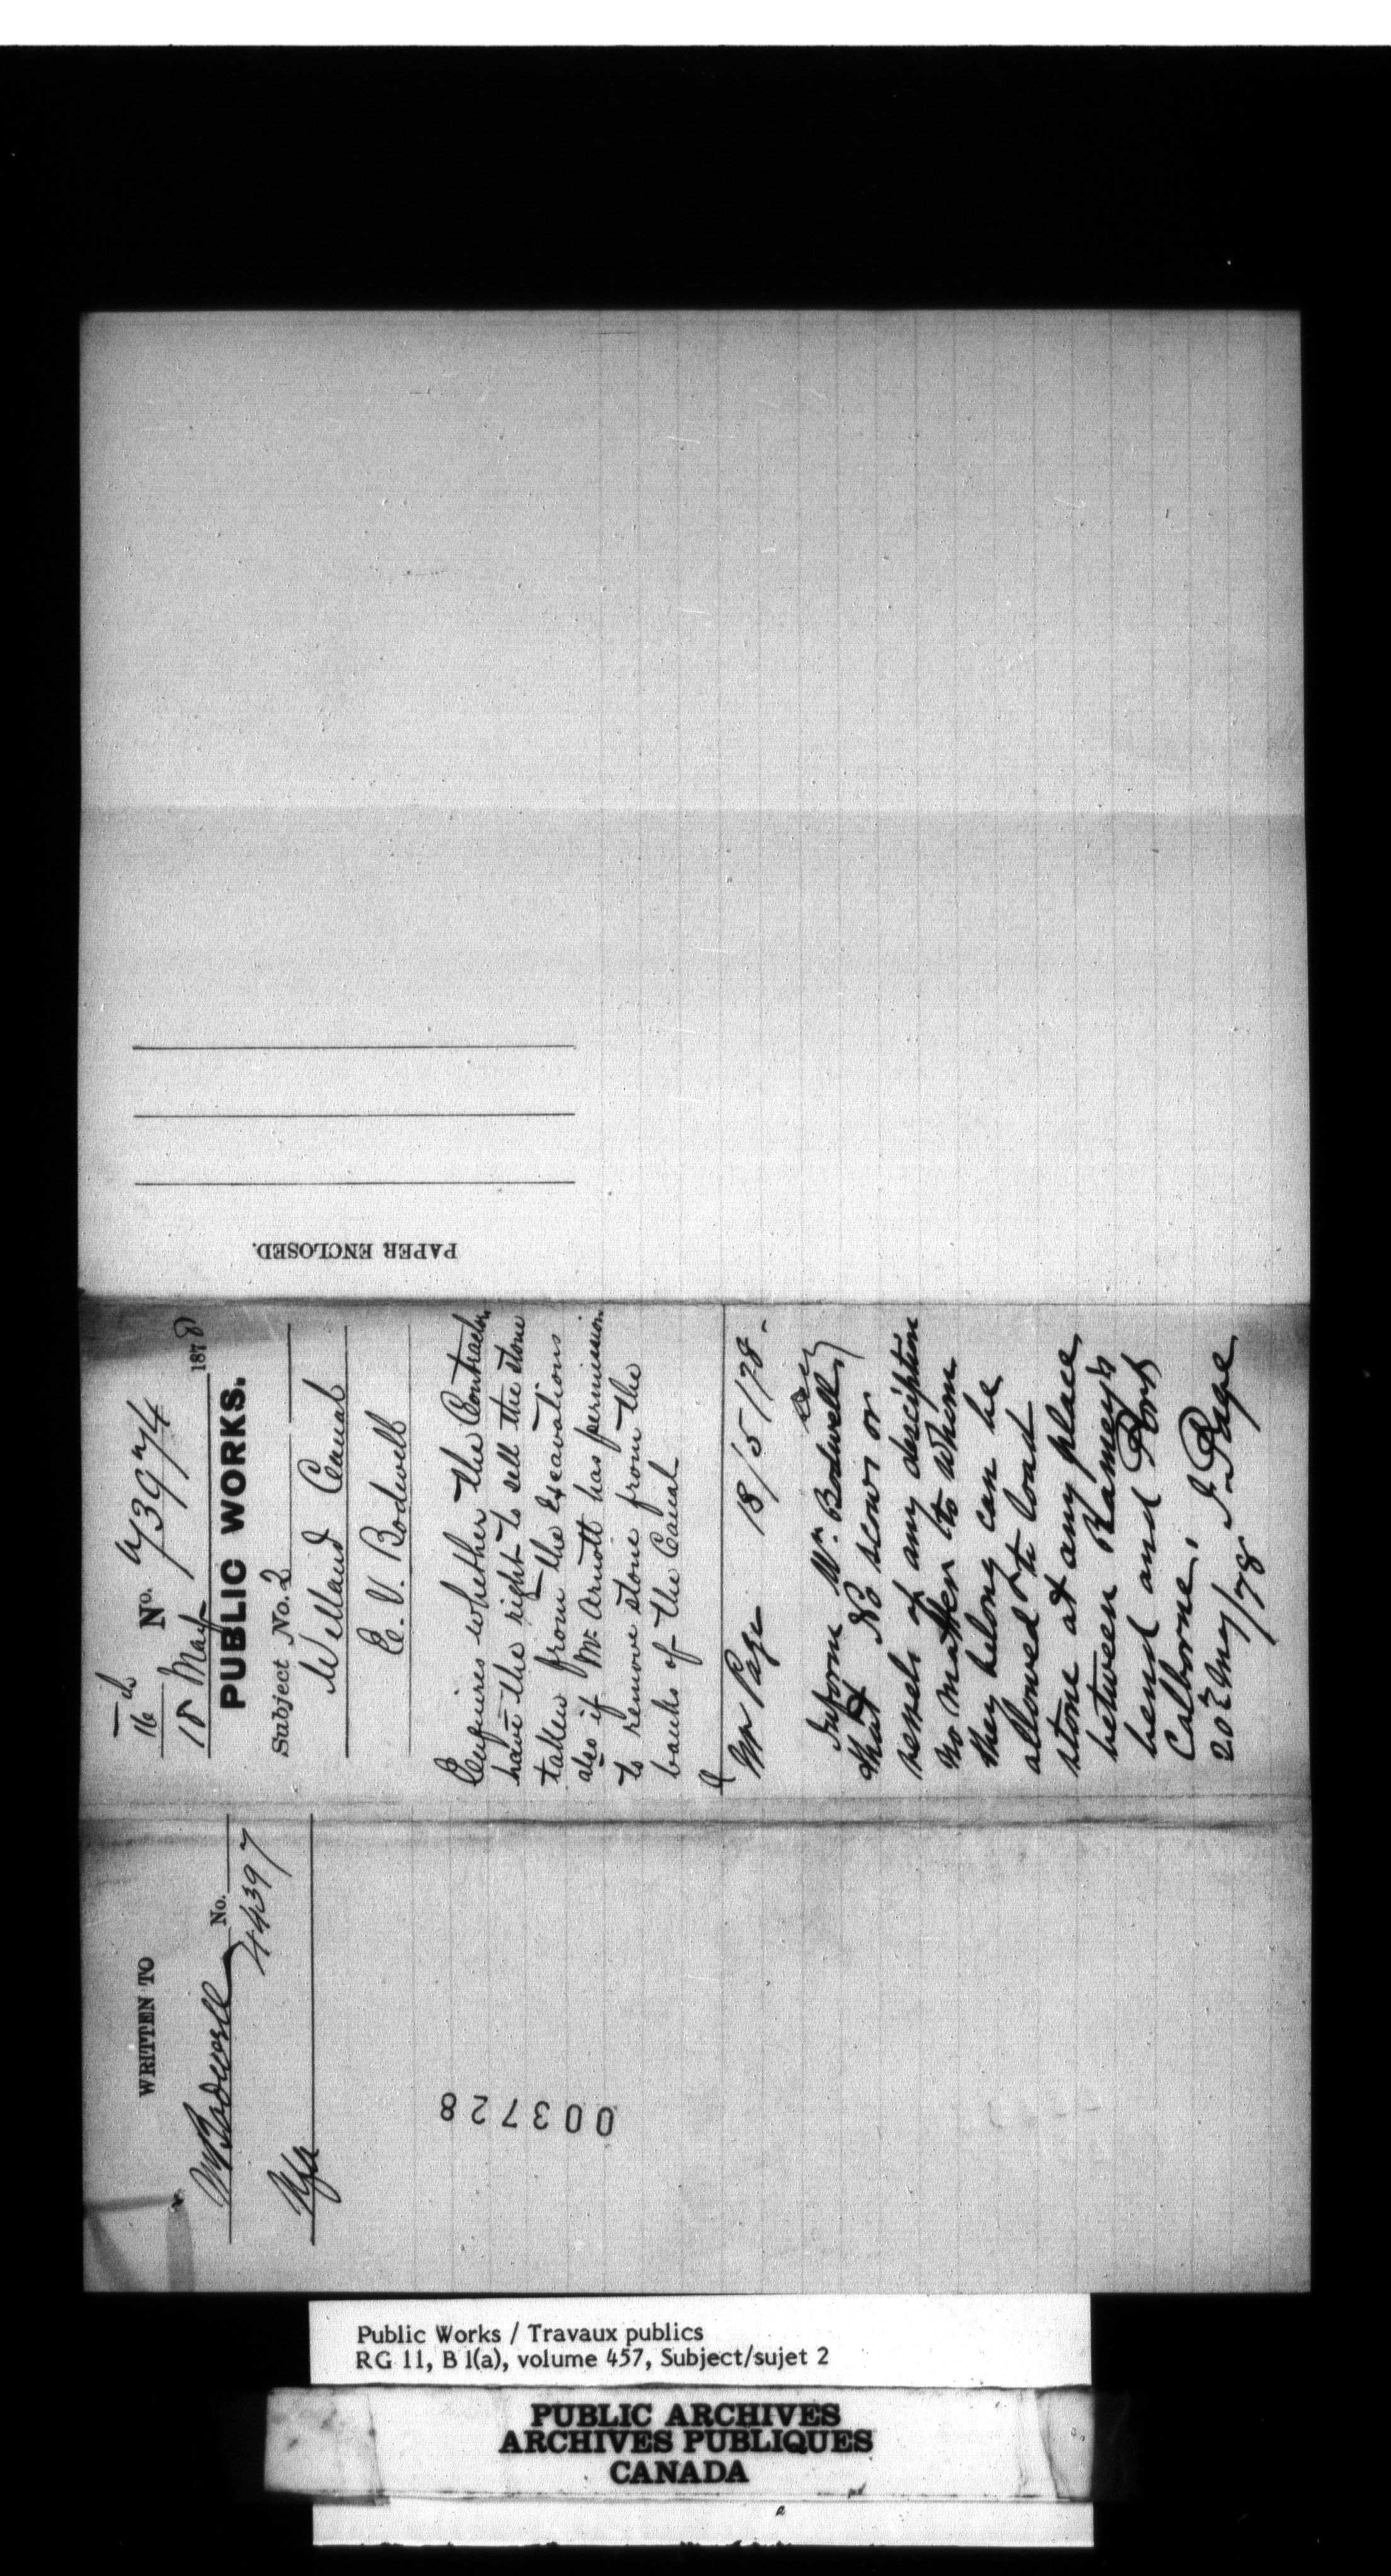 WRITTEN TO
Mr Bodwell No.
44397
PAPER ENCLOSED.
16
No. 73974
18 May 1878
PUBLIC WORKS.
Subject No. 2
Welland Canal
E. V. Bodwell
Enquires whether the Contractors
have the right to sell the stone
taken from the Excavations
also if Mr. Arnott has permission
to remove stone from the
banks of the Canal
Mr Page 18/5/78.
Inform Mr Bodwell
that No scows or
vessels of any description
no matter to whom
they belong can be
allowed to load
stone at any place
between Ramey's
bend and Port
Colborne.
20th May/78 J. Page
003728
Public Works / Travaux publics
RG 11, B 1(a), volume 457, Subject/sujet 2
PUBLIC ARCHIVES
ARCHIVES PUBLIQUES
CANADA